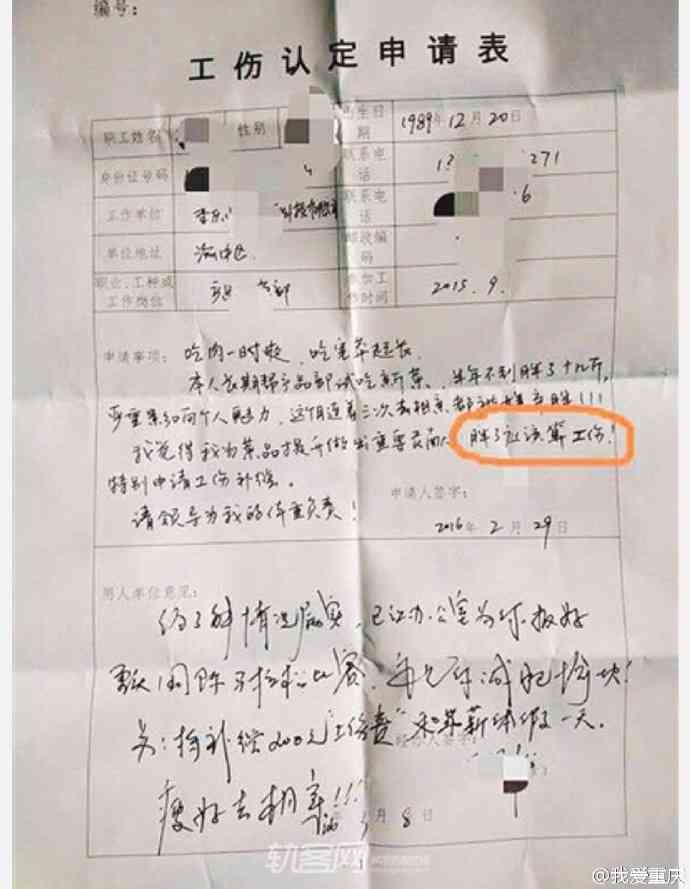 编号:
工伤认定申请表
职工姓名 性别 出生日期 1989年12月20日
身份证号码 联系电话 271
工作单位 联系电话 6
单位地址 渝中区 邮政编码
职业、工种或工作岗位 参加工作时间 2015.9.
申请事项: 吃肉一时爽,吃完莽起长。
本人长期帮产品部试吃新菜,半年不到胖了十几斤,
严重影响个人魅力,这个月连着三次去相亲都被嫌弃胖!!!
我觉得我为菜品提升做出重要贡献,胖了应该算工伤!
特别申请工伤补偿。
请领导为我的体重负责!
申请人签字:
2016年2月29日
用人单位意见:
经了解情况属实,已让办公室为你报好
重庆国际马拉松比赛,希望你减肥愉快!
另:将补偿200元"工伤费"和带薪休假一天。
经办人签字:
瘦好去相亲!!!
月8日
轨客网
@我爱重庆